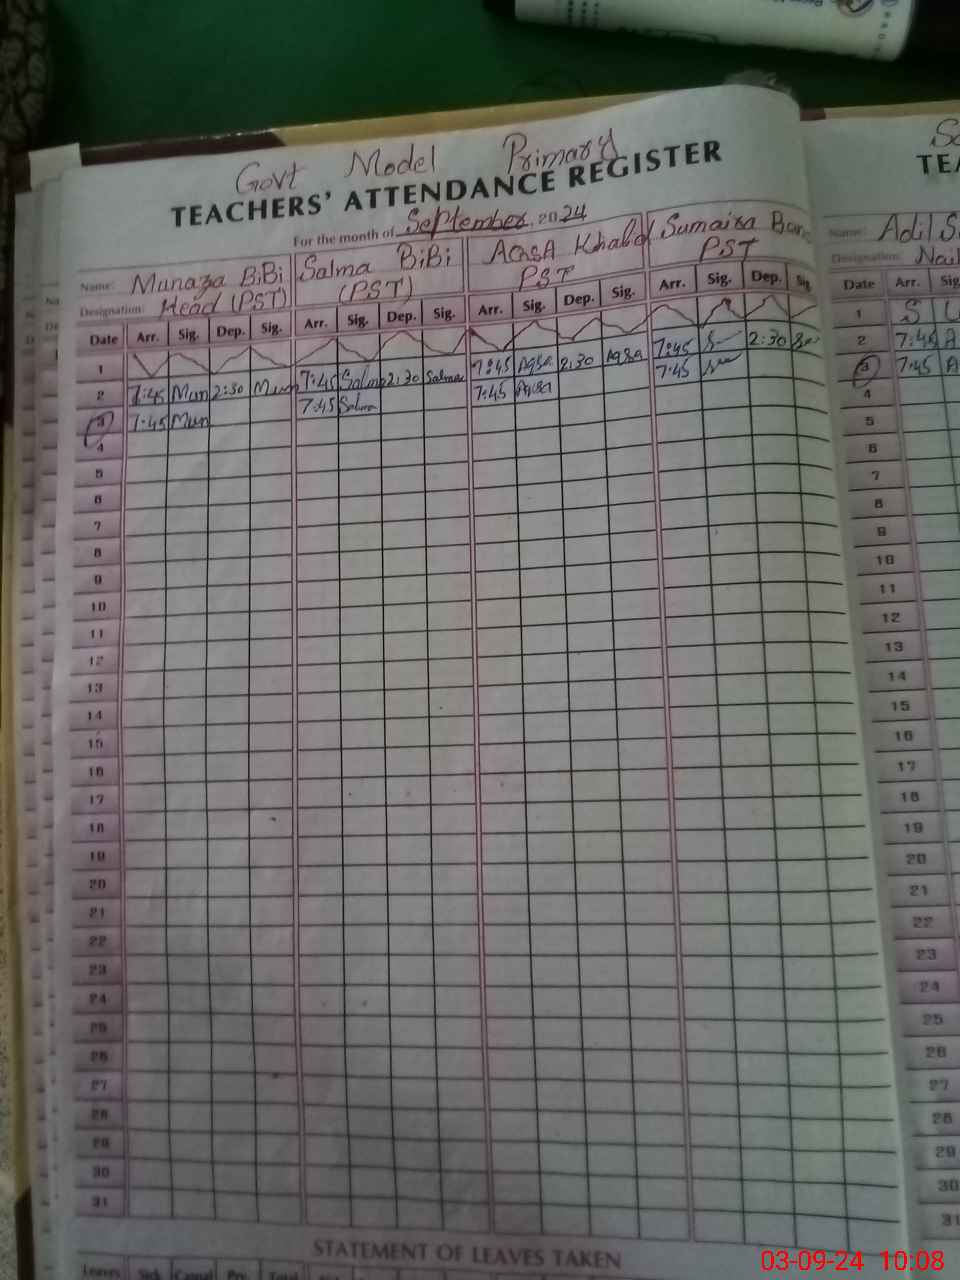 Govt Model Primary
TEACHERS' ATTENDANCE REGISTER
For the month of September, 2024
Name: Munaza BiBi Salma BiBi AqsA Khalid Sumaira
Designation: Head (PST) (PST) PST PST
Date Arr. Sig. Dep. Sig. Arr. Sig. Dep. Sig. Arr. Sig. Dep. Sig. Arr. Sig. Dep. Sig.
1
2 7:45 Mun 2:30 Mun 7:45 Salma 2:30 Salma 7:45 Aqsa 2:30 Aqsa 7:45 2:30
3 7:45 Mun 7:45 Salma 7:45 Aqsa 7:45
4
5
6
7
8
9
10
11
12
13
14
15
16
17
18
19
20
21
22
23
24
25
26
27
28
29
30
31
STATEMENT OF LEAVES TAKEN
Leaves Sick Casual Prv. Total
TEA
Name: Adil
Designation:
Date Arr. Sig
1 S U
2 7:45 A
3 7:45 A
4
5
6
7
8
9
10
11
12
13
14
15
16
17
18
19
20
21
22
23
24
25
26
27
28
29
30
31
03-09-24 10:08